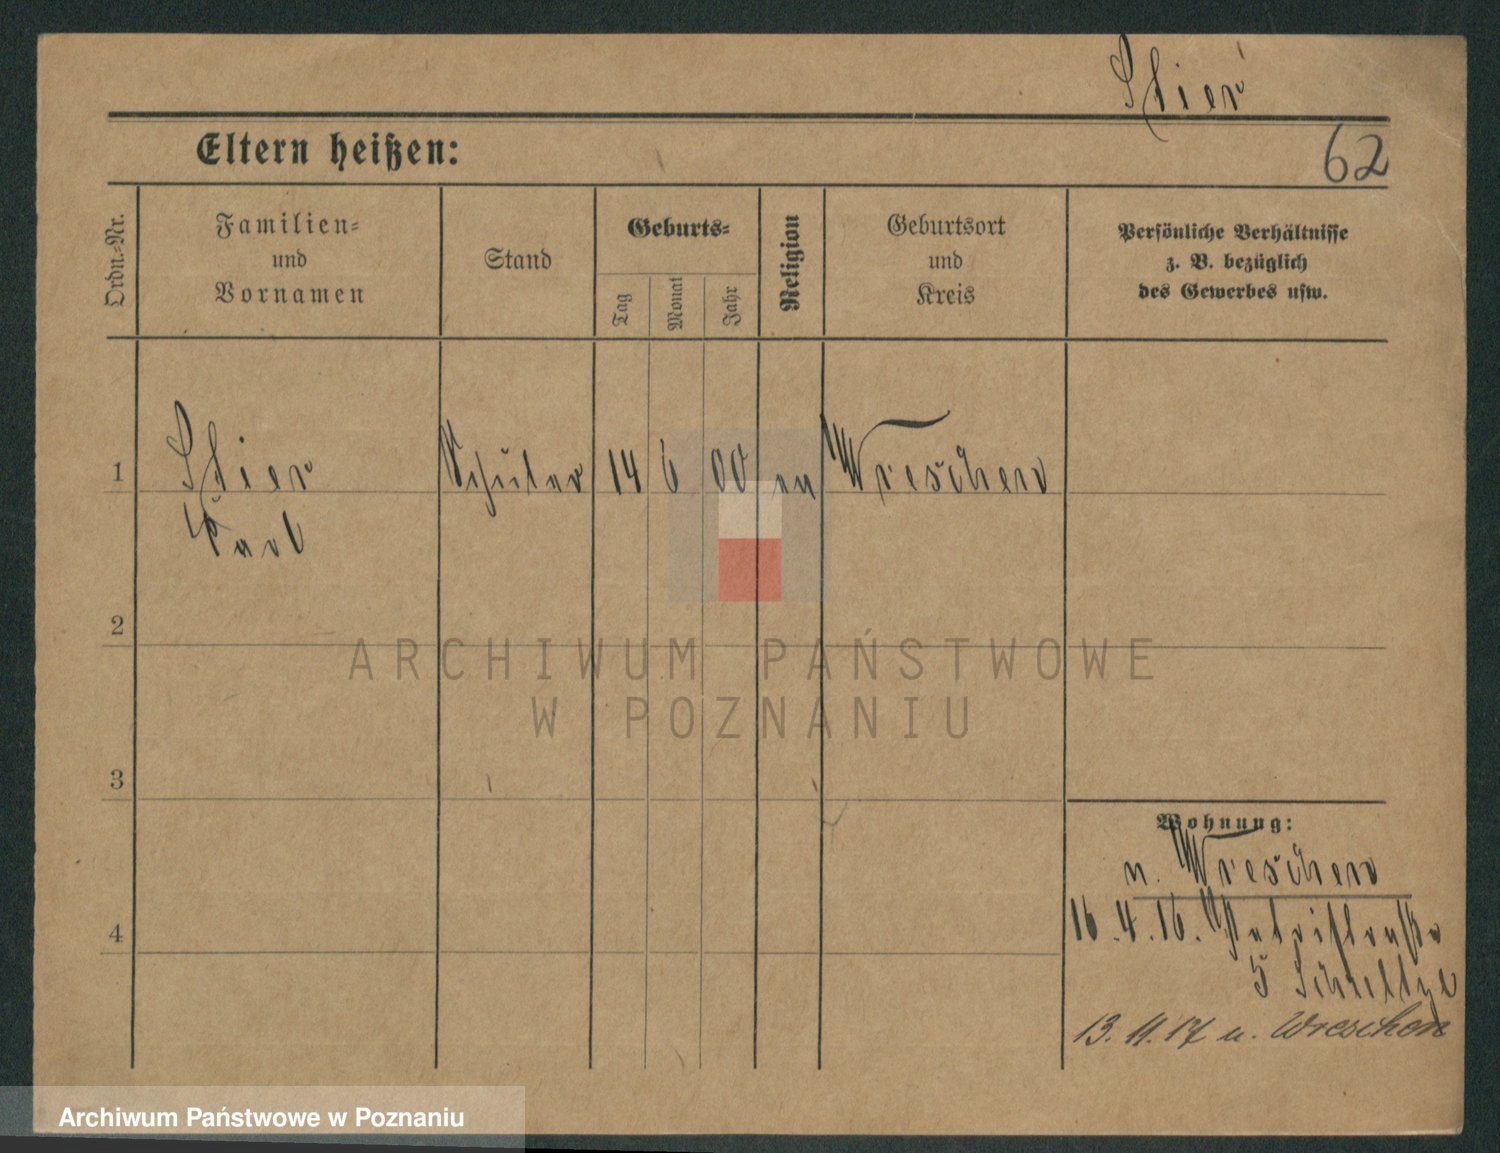 Stier
Eltern heißen:
62
Ordn.-Nr.
Familien-
und
Vornamen
Stand
Geburts-
Tag
Monat
Jahr
Religion
Geburtsort
und
Kreis
Persönliche Verhältnisse
z. B. bezüglich
des Gewerbes usw.
1
Stier
Schüler
14
6
00
Wreschen
Karl
2
3
4
Wohnung:
n. Wreschen
16.4.16.
5
13.11.17 n. Wreschen
ARCHIWUM PAŃSTWOWE
W POZNANIU
Archiwum Państwowe w Poznaniu